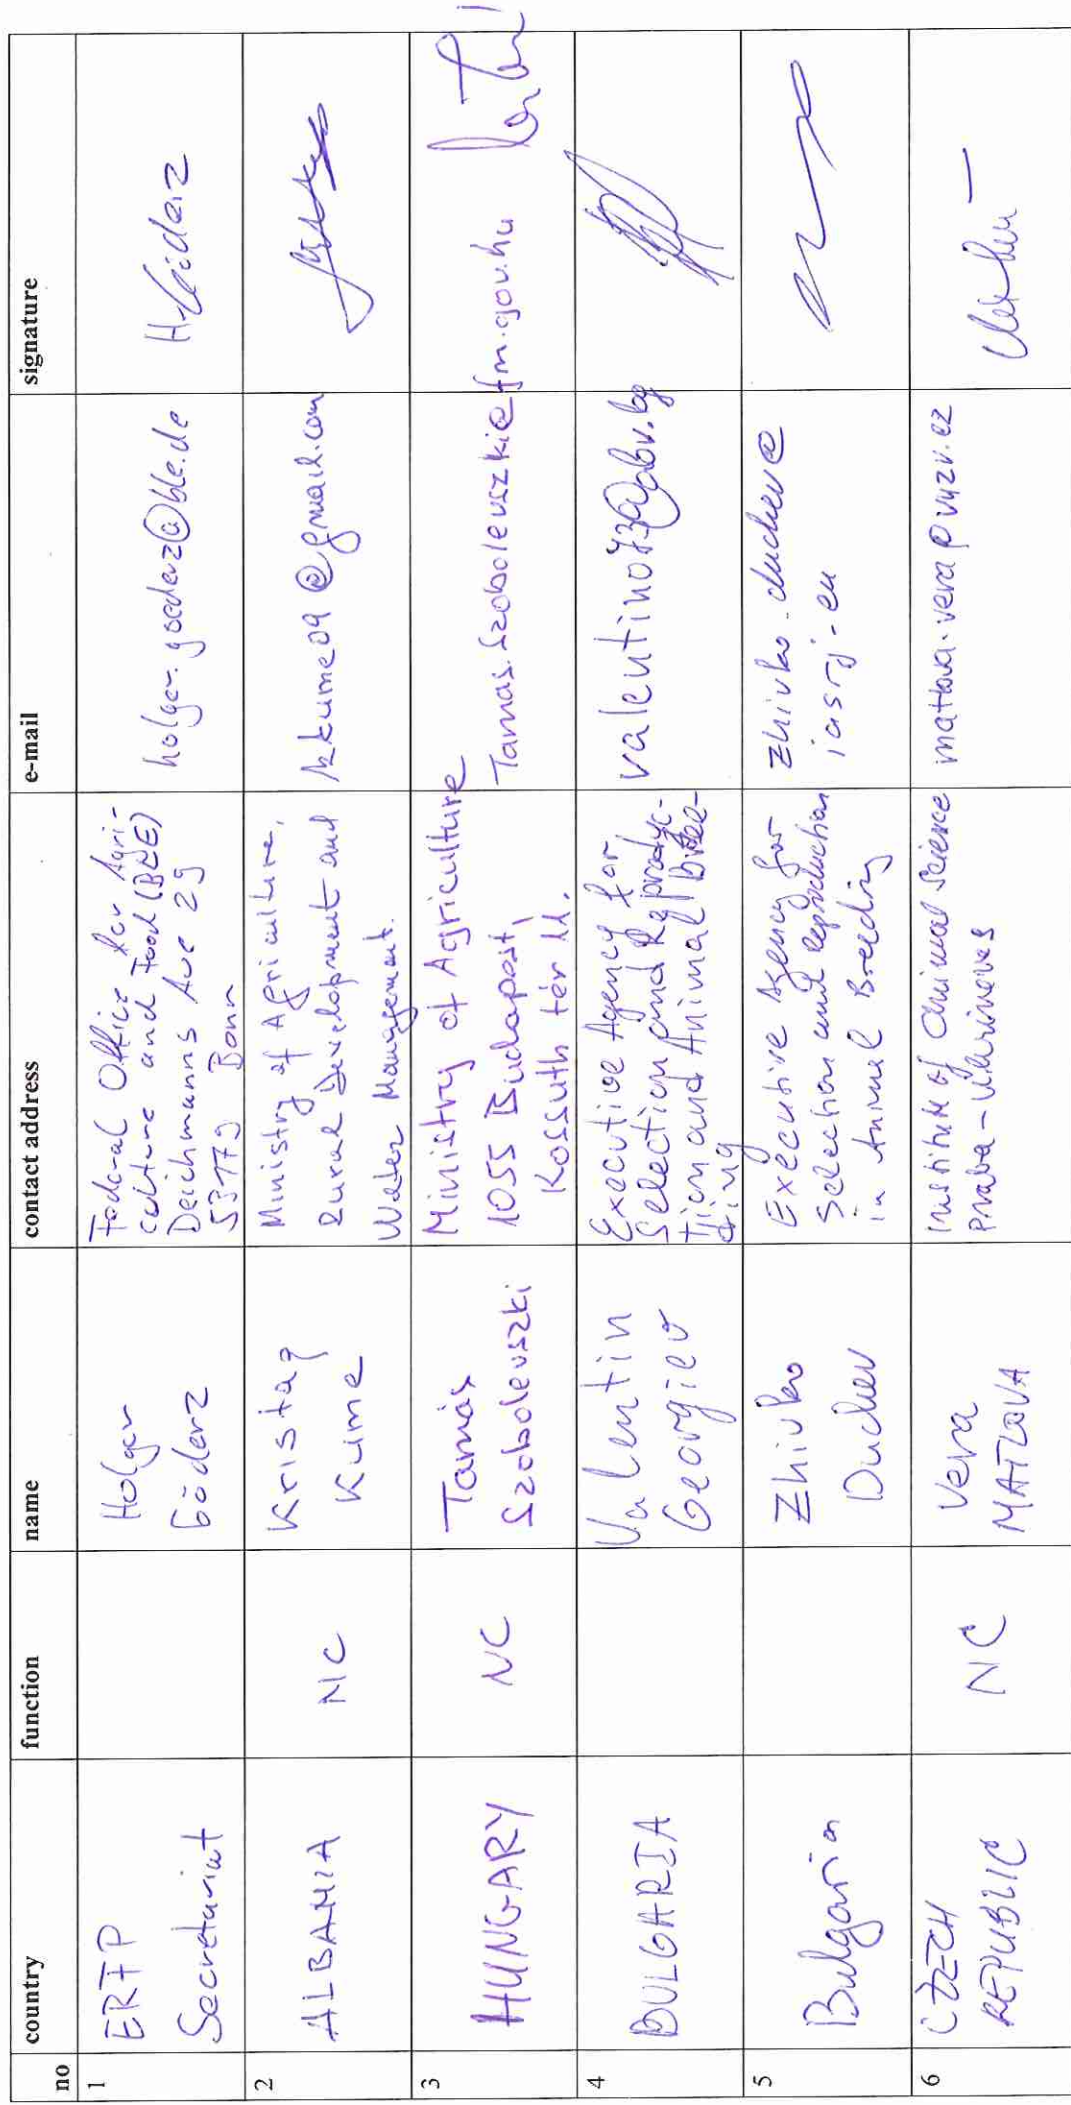 no country function name contact address e-mail signature
1
ERFP
Secretariat
Holger
Göderz
Federal Office for Agri-
culture and Food (BLE)
Deichmanns Aue 29
53179 Bonn
holger.goederz@ble.de
2
ALBANIA
NC
Kristaq
Kume
Ministry of Agriculture,
Rural Development and
Water Management.
kkume09@gmail.com
3
HUNGARY
NC
Tamás
Szobolevszki
Ministry of Agriculture
1055 Budapest,
Kossuth tér 11.
Tamas.Szobolevszki@fm.gov.hu
4
BULGARIA
Valentin
Georgiev
Executive Agency for
Selection and Reproduc-
tion and Animal Bree-
ding
valentino73@abv.bg
5
Bulgaria
Zhivko
Duchev
Executive Agency for
Selection and Reproduction
in Animal Breeding
zhivko.duchev@
iasrj.eu
6
CZECH
REPUBLIC
NC
Vera
MATLOVA
Institute of Animal Science
Praha-Uhrineves
matlova.vera@vuzv.cz